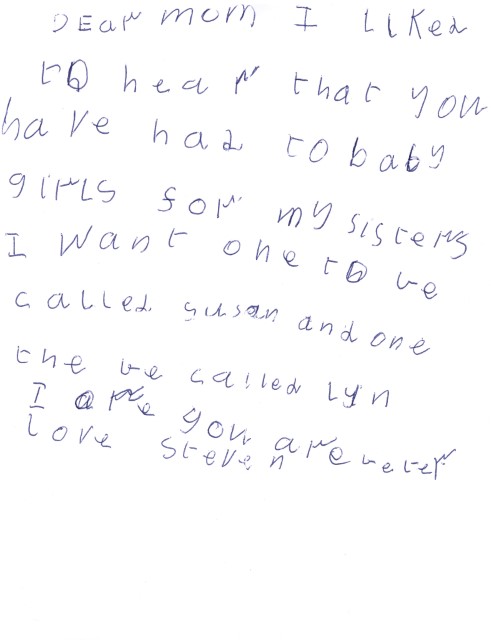 Dear mom I Liked
to hear that you
have had to baby
girls for my sisters
I want one to be
called susan and one
the be called Lyn
I are you are beter
love steven